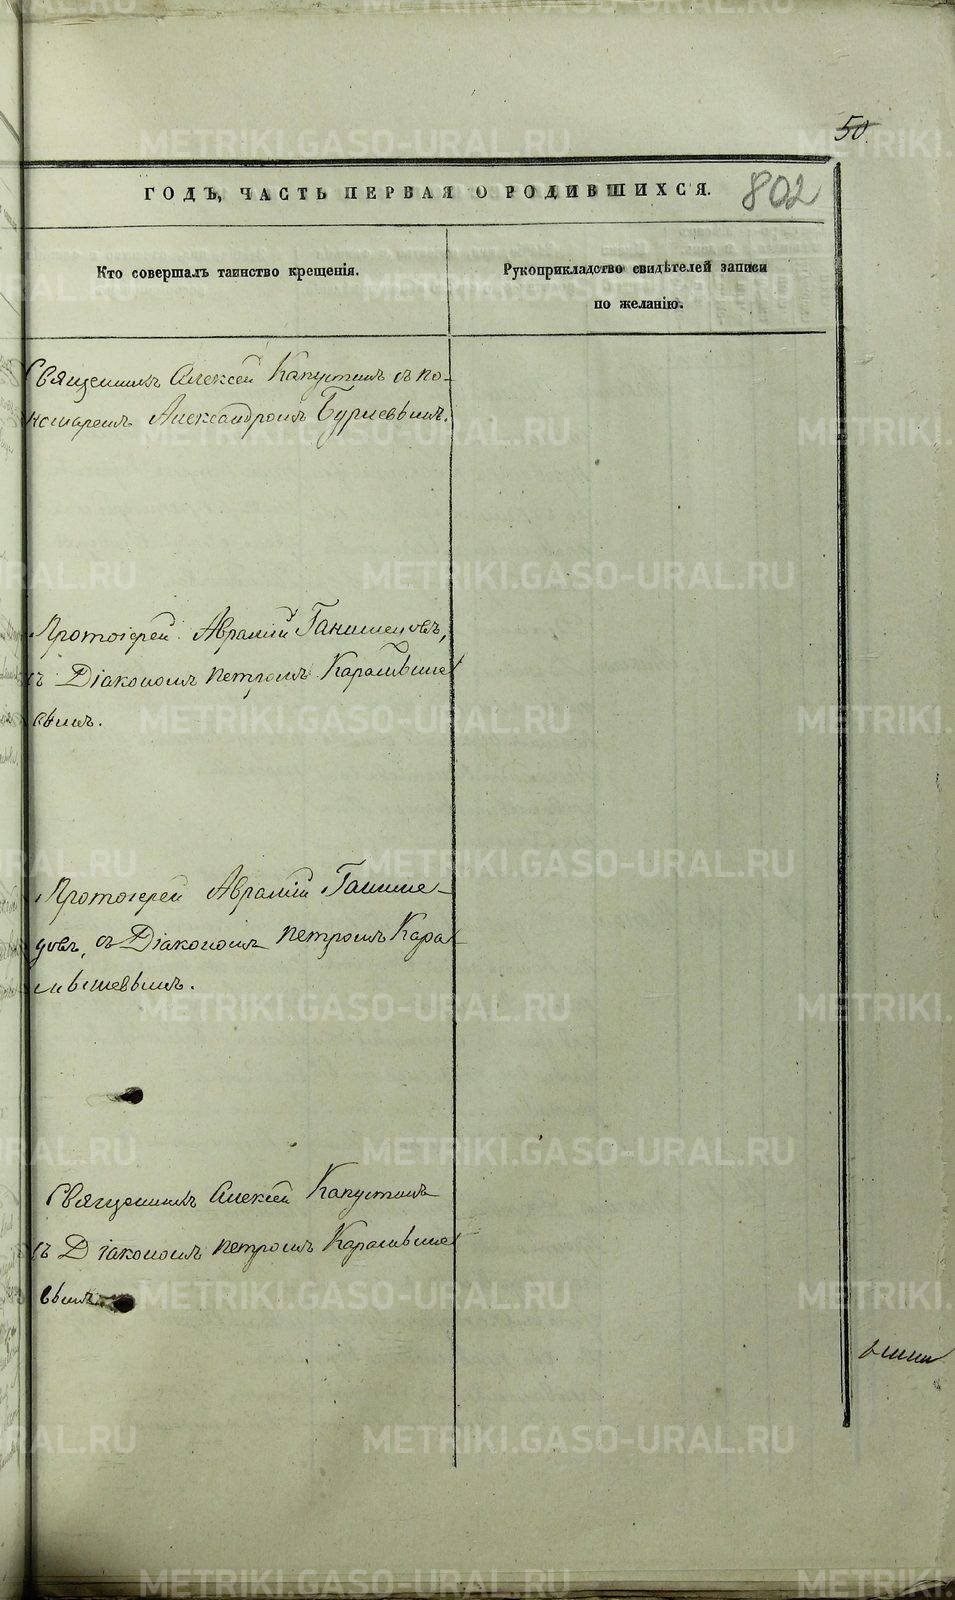 50.
ГОДЪ, ЧАСТЬ ПЕРВАЯ О РОДИВШИХСЯ.
802
Кто совершалъ таинство крещенія.
Рукоприкладство свидѣтелей записи
по желанію.
Священникъ Алексѣй Капустинъ съ по-
номаремъ Александромъ Бурневымъ.
Протоіерей Аврамій
съ Діакономъ Петромъ Карамыше
вымъ.
Протоіерей Аврамій
съ Діакономъ Петромъ Кара
мышевымъ.
Священникъ Алексѣй Капустинъ
съ Діакономъ Петромъ Карамыше
вымъ.
METRIKI.GASO-URAL.RU